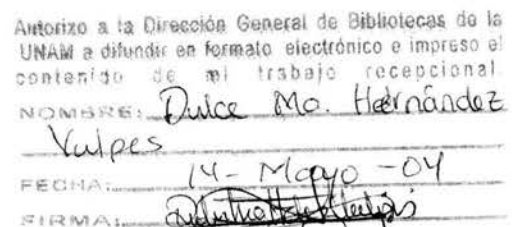 Autorizo a la Dirección General de Bibliotecas de la
UNAM a difundir en formato electrónico e impreso el
contenido de mi trabajo recepcional.
NOMBRE: Dulce Ma. Hernández
Yulpes
FECHA: 14-Mayo-04
FIRMA: